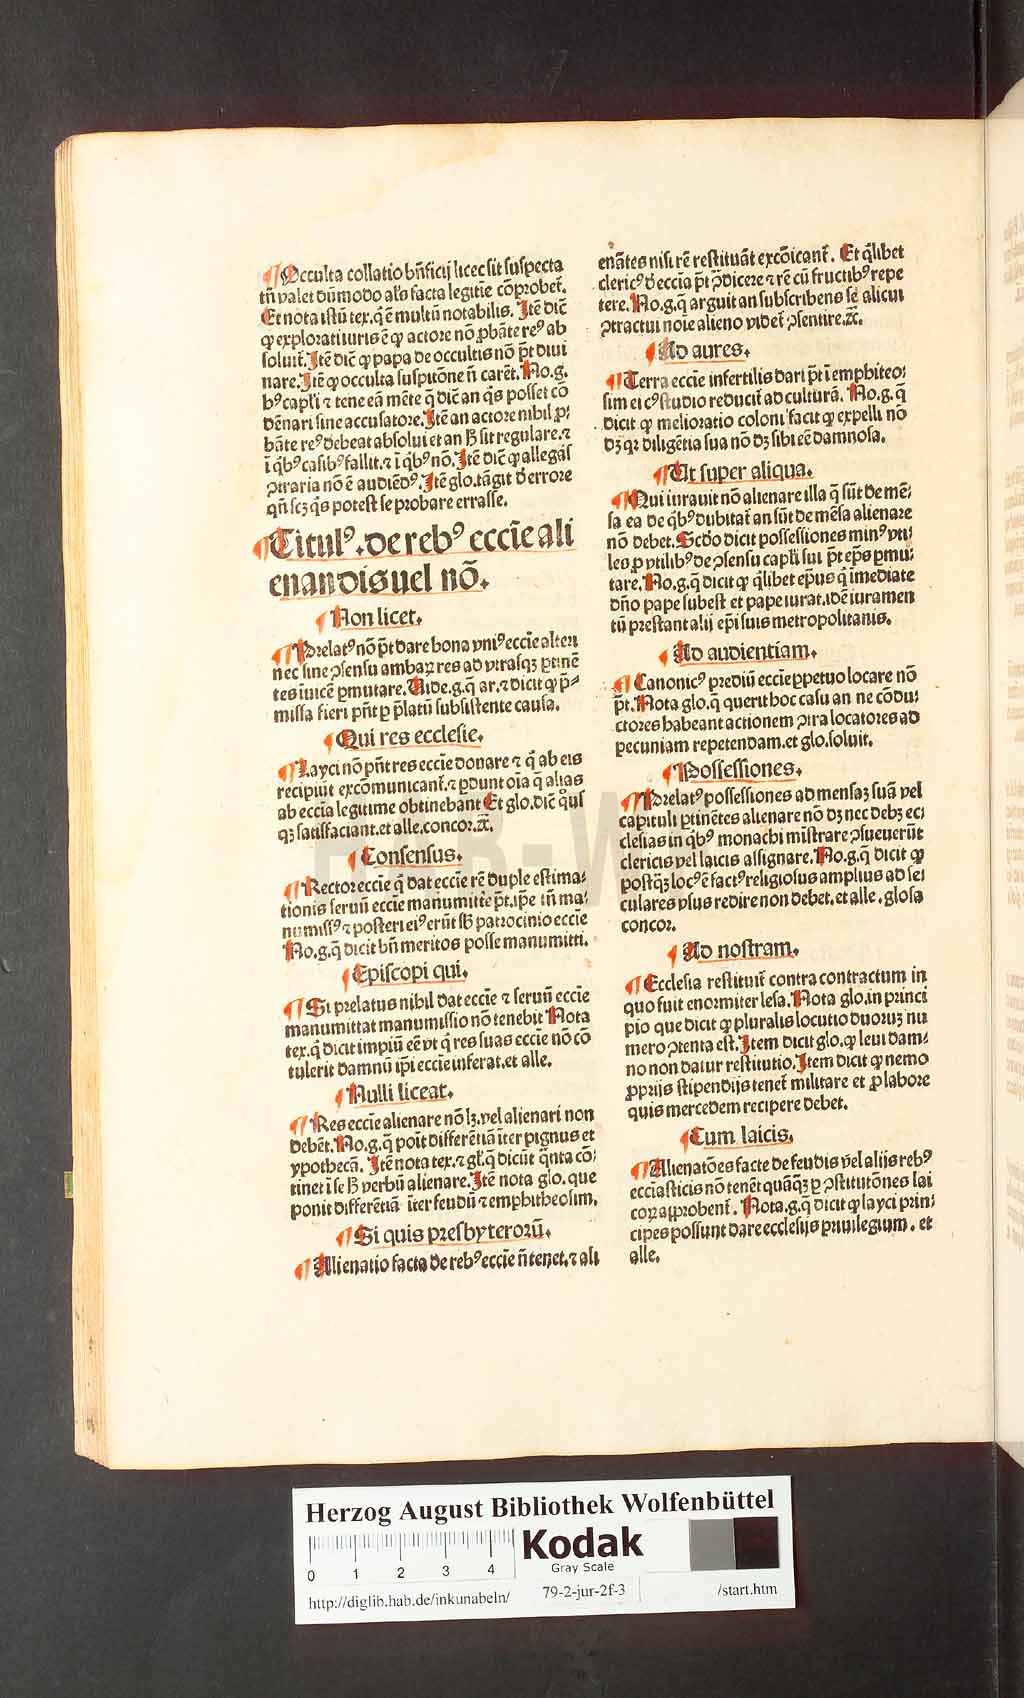 ¶Occulta collatio bn̄ficij licec sit suspecta
tn̄ valet dūmodo al's facta legitīe cōprobet̄.
Et nota istū tex. q̄ ē multū notabilis. Itē dic̄
ꝙ explorati iuris ē ꝙ actore nō ꝓbāte reꝰ ab
soluit̄. Itē dic̄ ꝙ papa de occultis nō pt̄ diui
nare. Itē ꝙ occulta suspitōne n̄ caret̄. No.g.
bꝰ capl'i ⁊ tene eā mēte q̄ dic̄ an q̄s posset cō
dēnari sine accusatore. Itē an actore nibil ꝓ:
bāte reꝰ debeat absolui et an ꝭ sit regulare. ⁊
ī qb'ꝰ casibꝰ fallit. ⁊ ī qb'ꝰ nō. Itē dic̄ ꝙ allegās
ꝯtraria nō ē audiēdꝰ. Itē glo. tāgit d'errore
qn̄ scꝫ q̄s potest se probare errasse.
¶Titulꝰ. de rebꝰ eccīe ali
enandis uel nō.
¶Non licet.
¶Prelatꝰ nō pt̄ dare bona vniꝰ eccīe alteri
nec sine ꝯsensu ambaꝝ res ad vtrasqꝫ ꝑtinē
tes inuicē ꝑmutare. Vide.g.q̄ ar. ⁊ dicit ꝙ p̄-
missa fieri pn̄t ꝑ p̄latū subsistente causa.
¶Qui res ecclesie.
¶Layci nō pn̄t res eccīe donare ⁊ q̄ ab eis
recipiūt excōmunicant̄. ⁊ ꝑdunt oīa q̄ alias
ab eccīa legitime obtinebant Et glo. dic̄ q̄us
qꝫ satisfaciant. et alle. concor. ⁊c̄.
¶Consensus.
¶Rector eccīe q̄ dat eccīe rē duple estima:
tionis seruū eccīe manumitte pt̄. ip̄e tn̄ ma:
numissꝰ ⁊ posteri eiꝰ erūt sb̄ patrocinio eccīe
No.g.q̄ dicit bn̄ meritos posse manumitti.
¶Episcopi qui.
¶Si prelatus nibil dat eccīe ⁊ seruū eccīe
manumittat manumissio nō tenebit Nota
tex. q̄ dicit impiū eē vt q̄ res suas eccīe nō cō
tulerit damnū ip̄i eccīe inferat. et alle.
¶Nulli liceat.
¶Res eccīe alienare nō lꝫ. vel alienari non
debet̄. No.g.q̄ poīt differētiā iter pignus et
ypothecā. Itē nota tex. ⁊ gl'. q̄ dicūt q̄nta cō:
tinet ī se ꝭ verbū alienare. Itē nota glo. que
ponit differētiā īter feudū ⁊ empbitheosim.
¶Si quis presbyterorū.
¶Alienatio facta de rebꝰ eccīe n̄ tenet. ⁊ ali
enātes nisi rē restituāt excōicant̄. Et q̄libet
clericꝰ d'eccīa pt̄ ꝯ̄dicere ⁊ rē cū fructibꝰ repe
tere. No.g.q̄ arguit an subscribens se alicui
ꝯtractui noīe alieno videt̄ ꝯsentire. ⁊c̄.
¶Ad aures.
¶Terra eccīe infertilis dari pt̄ ī empbiteo:
sim ei cꝰ studio reducit̄ ad culturā. No.g.q̄
dicit ꝙ melioratio coloni facit ꝙ expelli nō
dꝫ qꝛ diligētia sua nō dꝫ sibi eē damnosa.
¶Ut super aliqua.
¶Qui iurauit nō alienare illa q̄ sūt de mē:
sa ea de qb'ꝰ dubitat̄ an sūt de mēsa alienare
nō debet. Scdo dicit possessiones minꝰ vti
les ꝓ vtilibꝰ de ꝯsensu capl'i sui pt̄ ep̄s ꝑmu:
tare. No.g.q̄ dicit ꝙ q̄libet ep̄us q̄ īmediate
dn̄o pape subest et pape iurat. idē iuramen
tū prestant alij ep̄i suis metropolitanis.
¶Ad audientiam.
¶Canonicꝰ prediū eccīe ꝑpetuo locare nō
pt̄. Nota glo.q̄ querit hoc casu an ne cōdu:
ctores habeant actionem ꝯtra locatores ad
pecuniam repetendam. et glo. soluit.
¶Possessiones.
¶Prelatꝰ possessiones ad mensaꝫ suā vel
capituli ꝑtinētes alienare nō dꝫ nec debꝫ ec:
clesias in qb'ꝰ monachi mīstrare ꝯsueuerūt
clericis vel laicis assignare. No.g.q̄ dicit ꝙ
postqꝫ locꝰ ē factꝰ religiosus amplius ad se:
culares vsus redire non debet. et alle. glosa
concor.
¶Ad nostram.
¶Ecclesia restituit̄ contra contractum in
quo fuit enormiter lesa. Nota glo. in princi
pio que dicit ꝙ pluralis locutio duoruꝫ nu
mero ꝯtenta est. Item dicit glo. ꝙ leui dam:
no non datur restitutio. Item dicit ꝙ nemo
ꝓprijs stipendijs tenet̄ militare et ꝓ labore
quis mercedem recipere debet.
¶Cum laicis.
¶Alienatōes facte de feudis vel alijs rebꝰ
ecciasticis nō tenēt quāqꝫ ꝑ ꝯstitutōnes lai
coꝝ approbent̄. Nota.g.q̄ dicit ꝙ layci prin:
cipes possunt dare ecclesijs priuilegium. et
alle.
HAB-W
Herzog August Bibliothek Wolfenbüttel
0 1 2 3 4
Kodak
Gray Scale
http://diglib.hab.de/inkunabeln/ 79-2-jur-2f-3 /start.htm